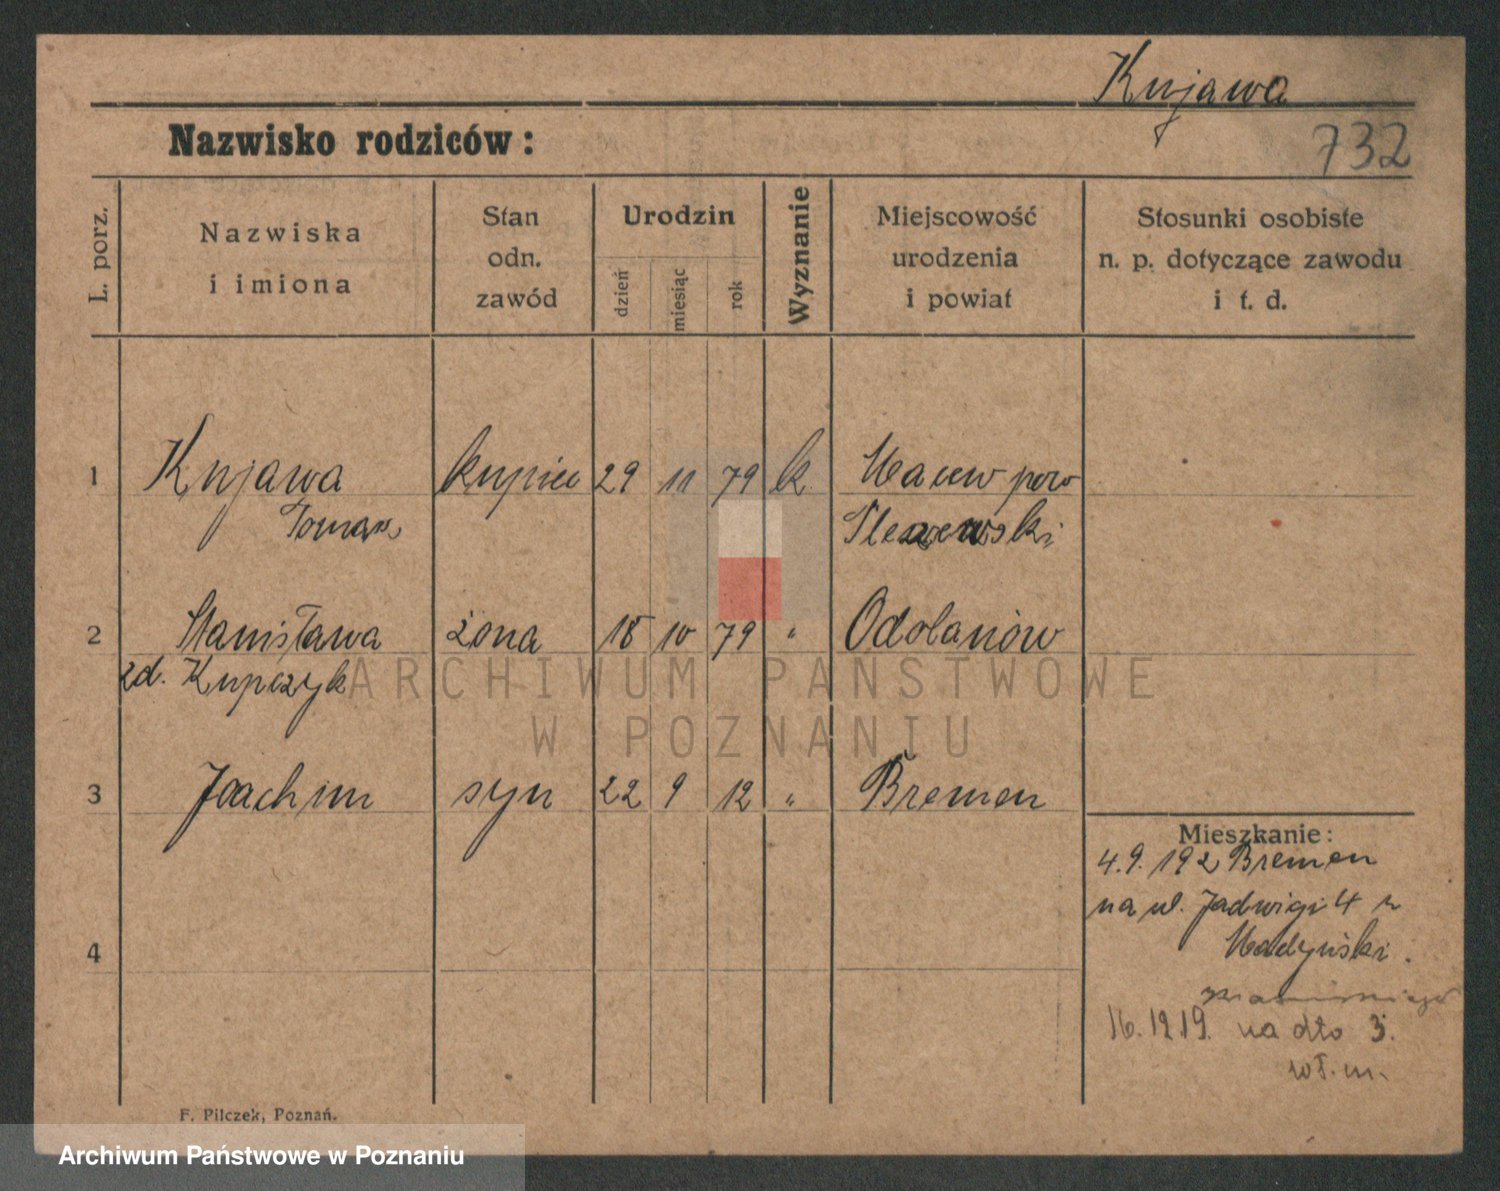 Kujawa
Nazwisko rodziców:
732
L. porz.
Nazwiska
i imiona
Stan
odn.
zawód
Urodzin
dzień
miesiąc
rok
Wyznanie
Miejscowość
urodzenia
i powiat
Stosunki osobiste
n. p. dotyczące zawodu
i t. d.
1 Kujawa kupiec 29 11 79 k. pow
Tomasz Pleszewski
2 Stanisława żona 18 10 79 " Odolanów
zd. Kupczyk
ARCHIWUM PAŃSTWOWE
W POZNANIU
3 Joachim syn 22 9 12 " Bremen
Mieszkanie:
4.9.192 Bremen
na ul. Jadwigi 4
4
na dto 3.
wł. m.
F. Pilczek, Poznań.
Archiwum Państwowe w Poznaniu